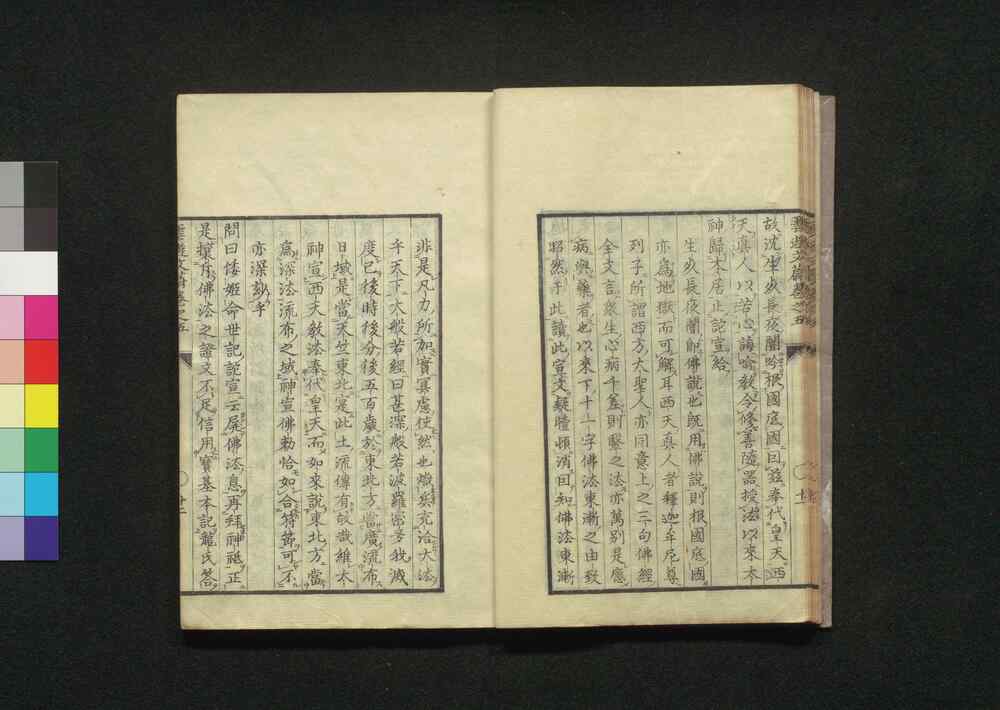 故沈生死長夜闇吟根國底國曰茲奉代皇天西
天真人以苦心誨喻教令修善隨器授法以來太
神歸本居止詑宣給
生死長夜闇即佛說也既用佛說則根國底國
亦爲地獄而可解耳西天真人者釋迦牟尼尊
列子所謂西方大聖人亦同意上之三句佛經
全文言衆生心病千差則醫之法亦萬別是應
病與藥者也以來下十一字佛法東漸之由致
昭然乎此讀此宣文疑曀頓消固知佛法東漸
非是凡力所加實冥慮使然也熾矣充洽大法
乎天下大般若經曰甚深般若波羅蜜多我滅
度已後時後分後五百歲於東北方當廣流布
日域是當天竺東北寔此土流傳有故哉維太
神宣西天敎法奉代皇天而如來說東北方當
爲深法流布之域神宣佛勅恰如合符節可不
亦深敬乎
問曰倭姬命世記託宣云屛佛法息再拜神祗正
是攘斥佛法之證文不足信用寶基本記龍氏答